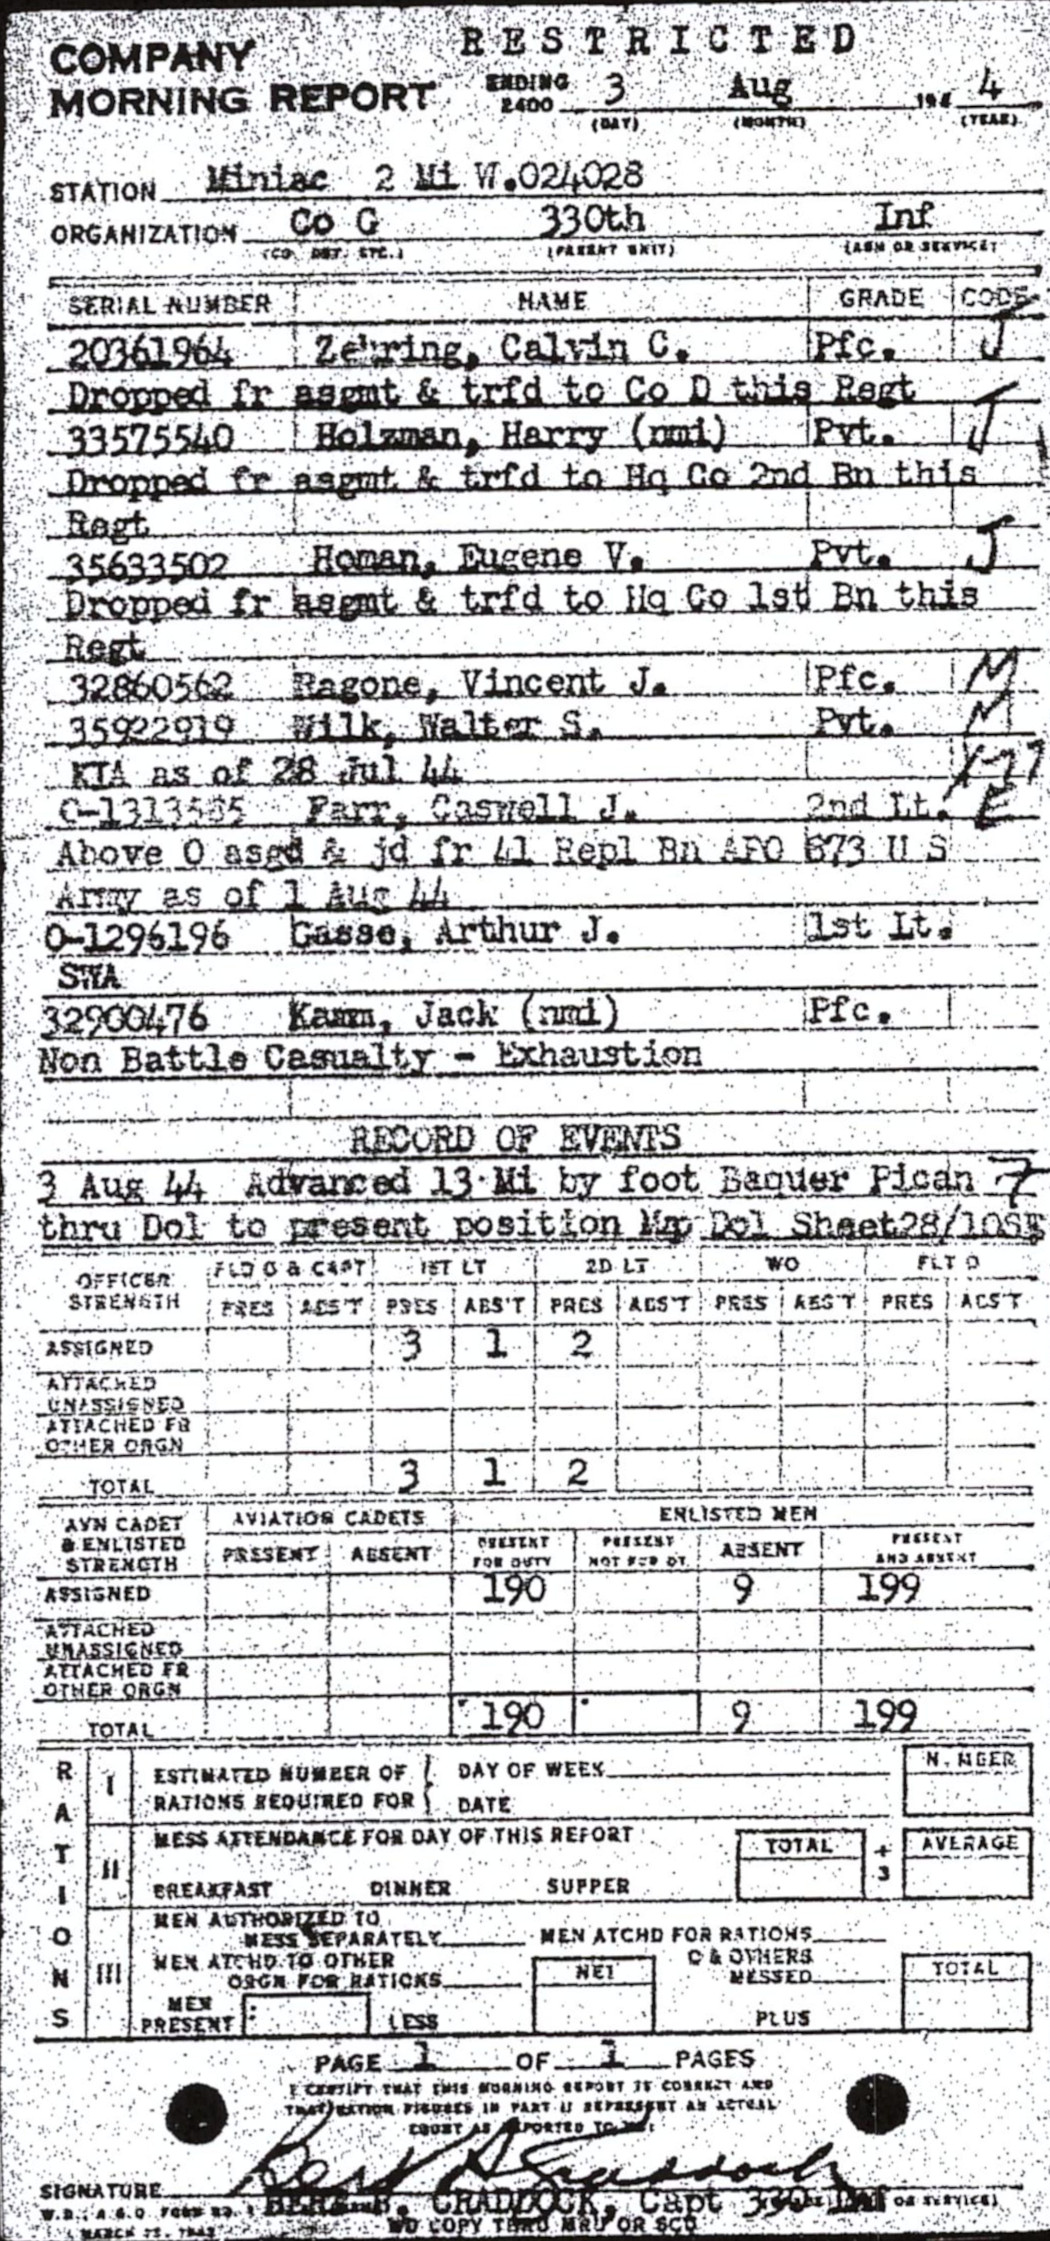 RESTRICTED
COMPANY
MORNING REPORT
ENDING 2400 3 Aug 194 4
(DAY) (MONTH) (YEAR)
STATION Miniac 2 Mi W.024028
ORGANIZATION Co G 330th Inf
(CO. DET. ETC.) (PARENT UNIT) (ARM OR SERVICE)
SERIAL NUMBER NAME GRADE CODE
20361964 Zehring, Calvin C. Pfc. J
Dropped fr asgmt & trfd to Co D this Regt
33575540 Holzman, Harry (nmi) Pvt. J
Dropped fr asgmt & trfd to Hq Co 2nd Bn this
Regt
35633502 Homan, Eugene V. Pvt. J
Dropped fr asgmt & trfd to Hq Co 1st Bn this
Regt
32860562 Ragone, Vincent J. Pfc. M
35922919 Wilk, Walter S. Pvt. M
KIA as of 28 Jul 44
Farr, Caswell J. 2nd Lt. E
Above O asgd & jd fr 41 Repl Bn APO 873 U S
Army as of 1 Aug 44
O-1296196 Gasse, Arthur J. 1st Lt.
SWA
32900476 Kamm, Jack (nmi) Pfc.
Non Battle Casualty - Exhaustion
RECORD OF EVENTS
3 Aug 44 Advanced 13 Mi by foot Baguer Pican 7
thru Dol to present position Map Dol Sheet28/10SE
OFFICER STRENGTH FLD O & CAPT 1ST LT 2D LT WO FLT O
PRES ABS'T PRES ABS'T PRES ABS'T PRES ABS'T PRES ABS'T
ASSIGNED 3 1 2
ATTACHED UNASSIGNED
ATTACHED FR OTHER ORGN
TOTAL 3 1 2
AVN CADET & ENLISTED STRENGTH AVIATION CADETS ENLISTED MEN
PRESENT ABSENT PRESENT FOR DUTY PRESENT NOT FOR DY ABSENT PRESENT AND ABSENT
ASSIGNED 190 9 199
ATTACHED UNASSIGNED
ATTACHED FR OTHER ORGN
TOTAL 190 9 199
RATIONS
I ESTIMATED NUMBER OF RATIONS REQUIRED FOR DAY OF WEEK NUMBER
DATE
II MESS ATTENDANCE FOR DAY OF THIS REPORT TOTAL ÷ 3 AVERAGE
BREAKFAST DINNER SUPPER
III MEN AUTHORIZED TO MESS SEPARATELY MEN ATCHD FOR RATIONS
MEN ATCHD TO OTHER ORGN FOR RATIONS NET O & OTHERS MESSED TOTAL
MEN PRESENT LESS PLUS
PAGE 1 OF 1 PAGES
I CERTIFY THAT THIS MORNING REPORT IS CORRECT AND
THAT RATION FIGURES IN PART II REPRESENT AN ACTUAL
COUNT AS REPORTED TO ME:
SIGNATURE
CRADDOCK, Capt 330 Inf
W.D., A.G.O. FORM NO. 1
MARCH
WD COPY THRU MRU OR SCU